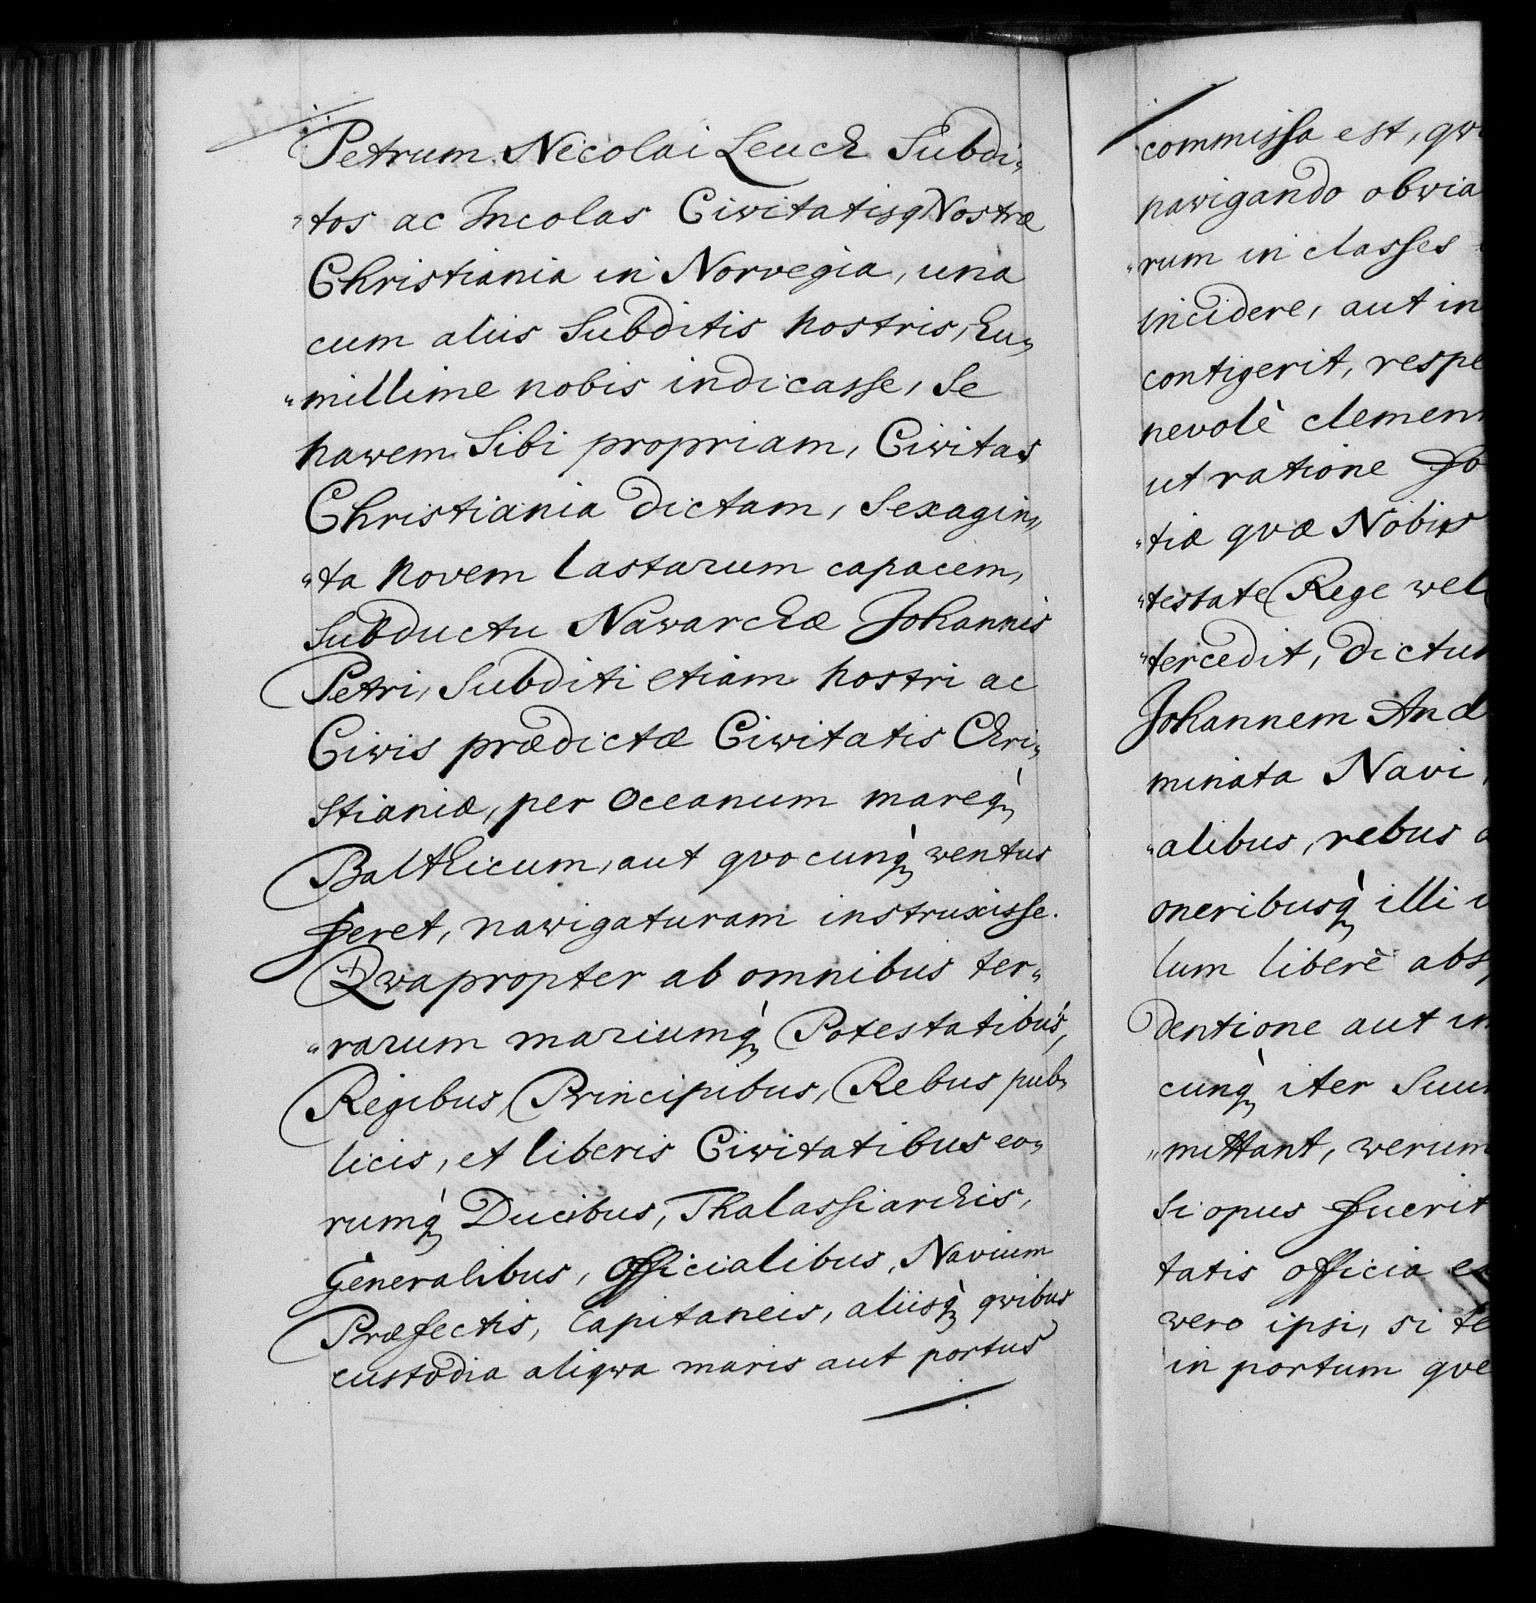 Petrum Nicolai Leuch Subdi„
„tos ac Incolas Civitatisq Nostræ
Christiania in Norvegia, una
cum aliis Subditis nostris, hu„
„millime nobis indicasse, Se
nawem Sibi propriam, Civitas
Christiania dictam, Sexagin„
„ta novem lastarum capacem,
Subductu Nawarchæ Johannis
Petri, Subditi etiam nostri ac
Civis prædictæ Civitatis Chri„
stianiæ, per Oceanum mareq
Balthicum, aut qvocunq wentus
feret, nawigaturam instruxisse.
Qwapropter ab omnibus ter„
„rarum mariumq Potestatibus,
Regibus, Principibus, Rebus pub„
licis, et liberis Civitatibus eo„
rumq Ducibus, Thalassiarchis,
Generalibus, Officialibus, Navium
Præfectis, Capitaneis, aliisq qwibus
custodia aliqwa maris aut portus
commissa est,
nawigando obwia
„rum in classes
incidere, aut in
contigerit, respe
nevolè clemen
ut ratione
„tiæ qvæ Nobis
„testate Rege wel
„tercedit, dictum
Johannem And
minata Navi
„alibus, rebus
oneribusq illi
lum liberè abs
dentione aut in
cunq iter Suum
„mittant, werum
Si opus fuerit
tatis officia
wero ipsi, si te
in portum qve